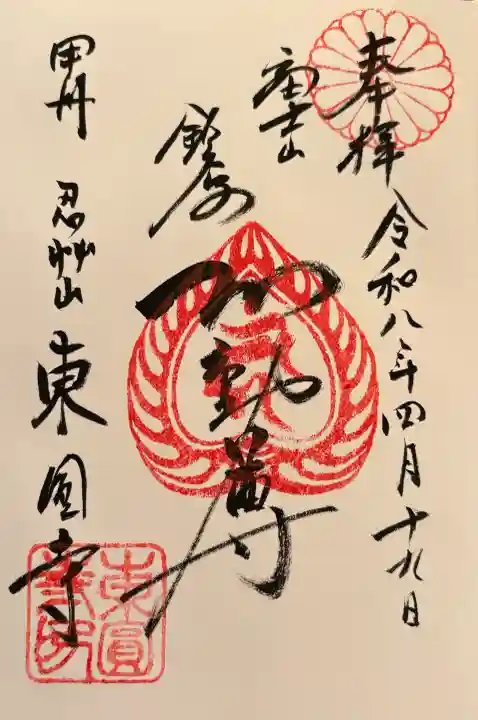 奉拝
令和八年四月十九日
富士山
不動尊
甲州 忍艸山 東圓寺
東圓
寺印